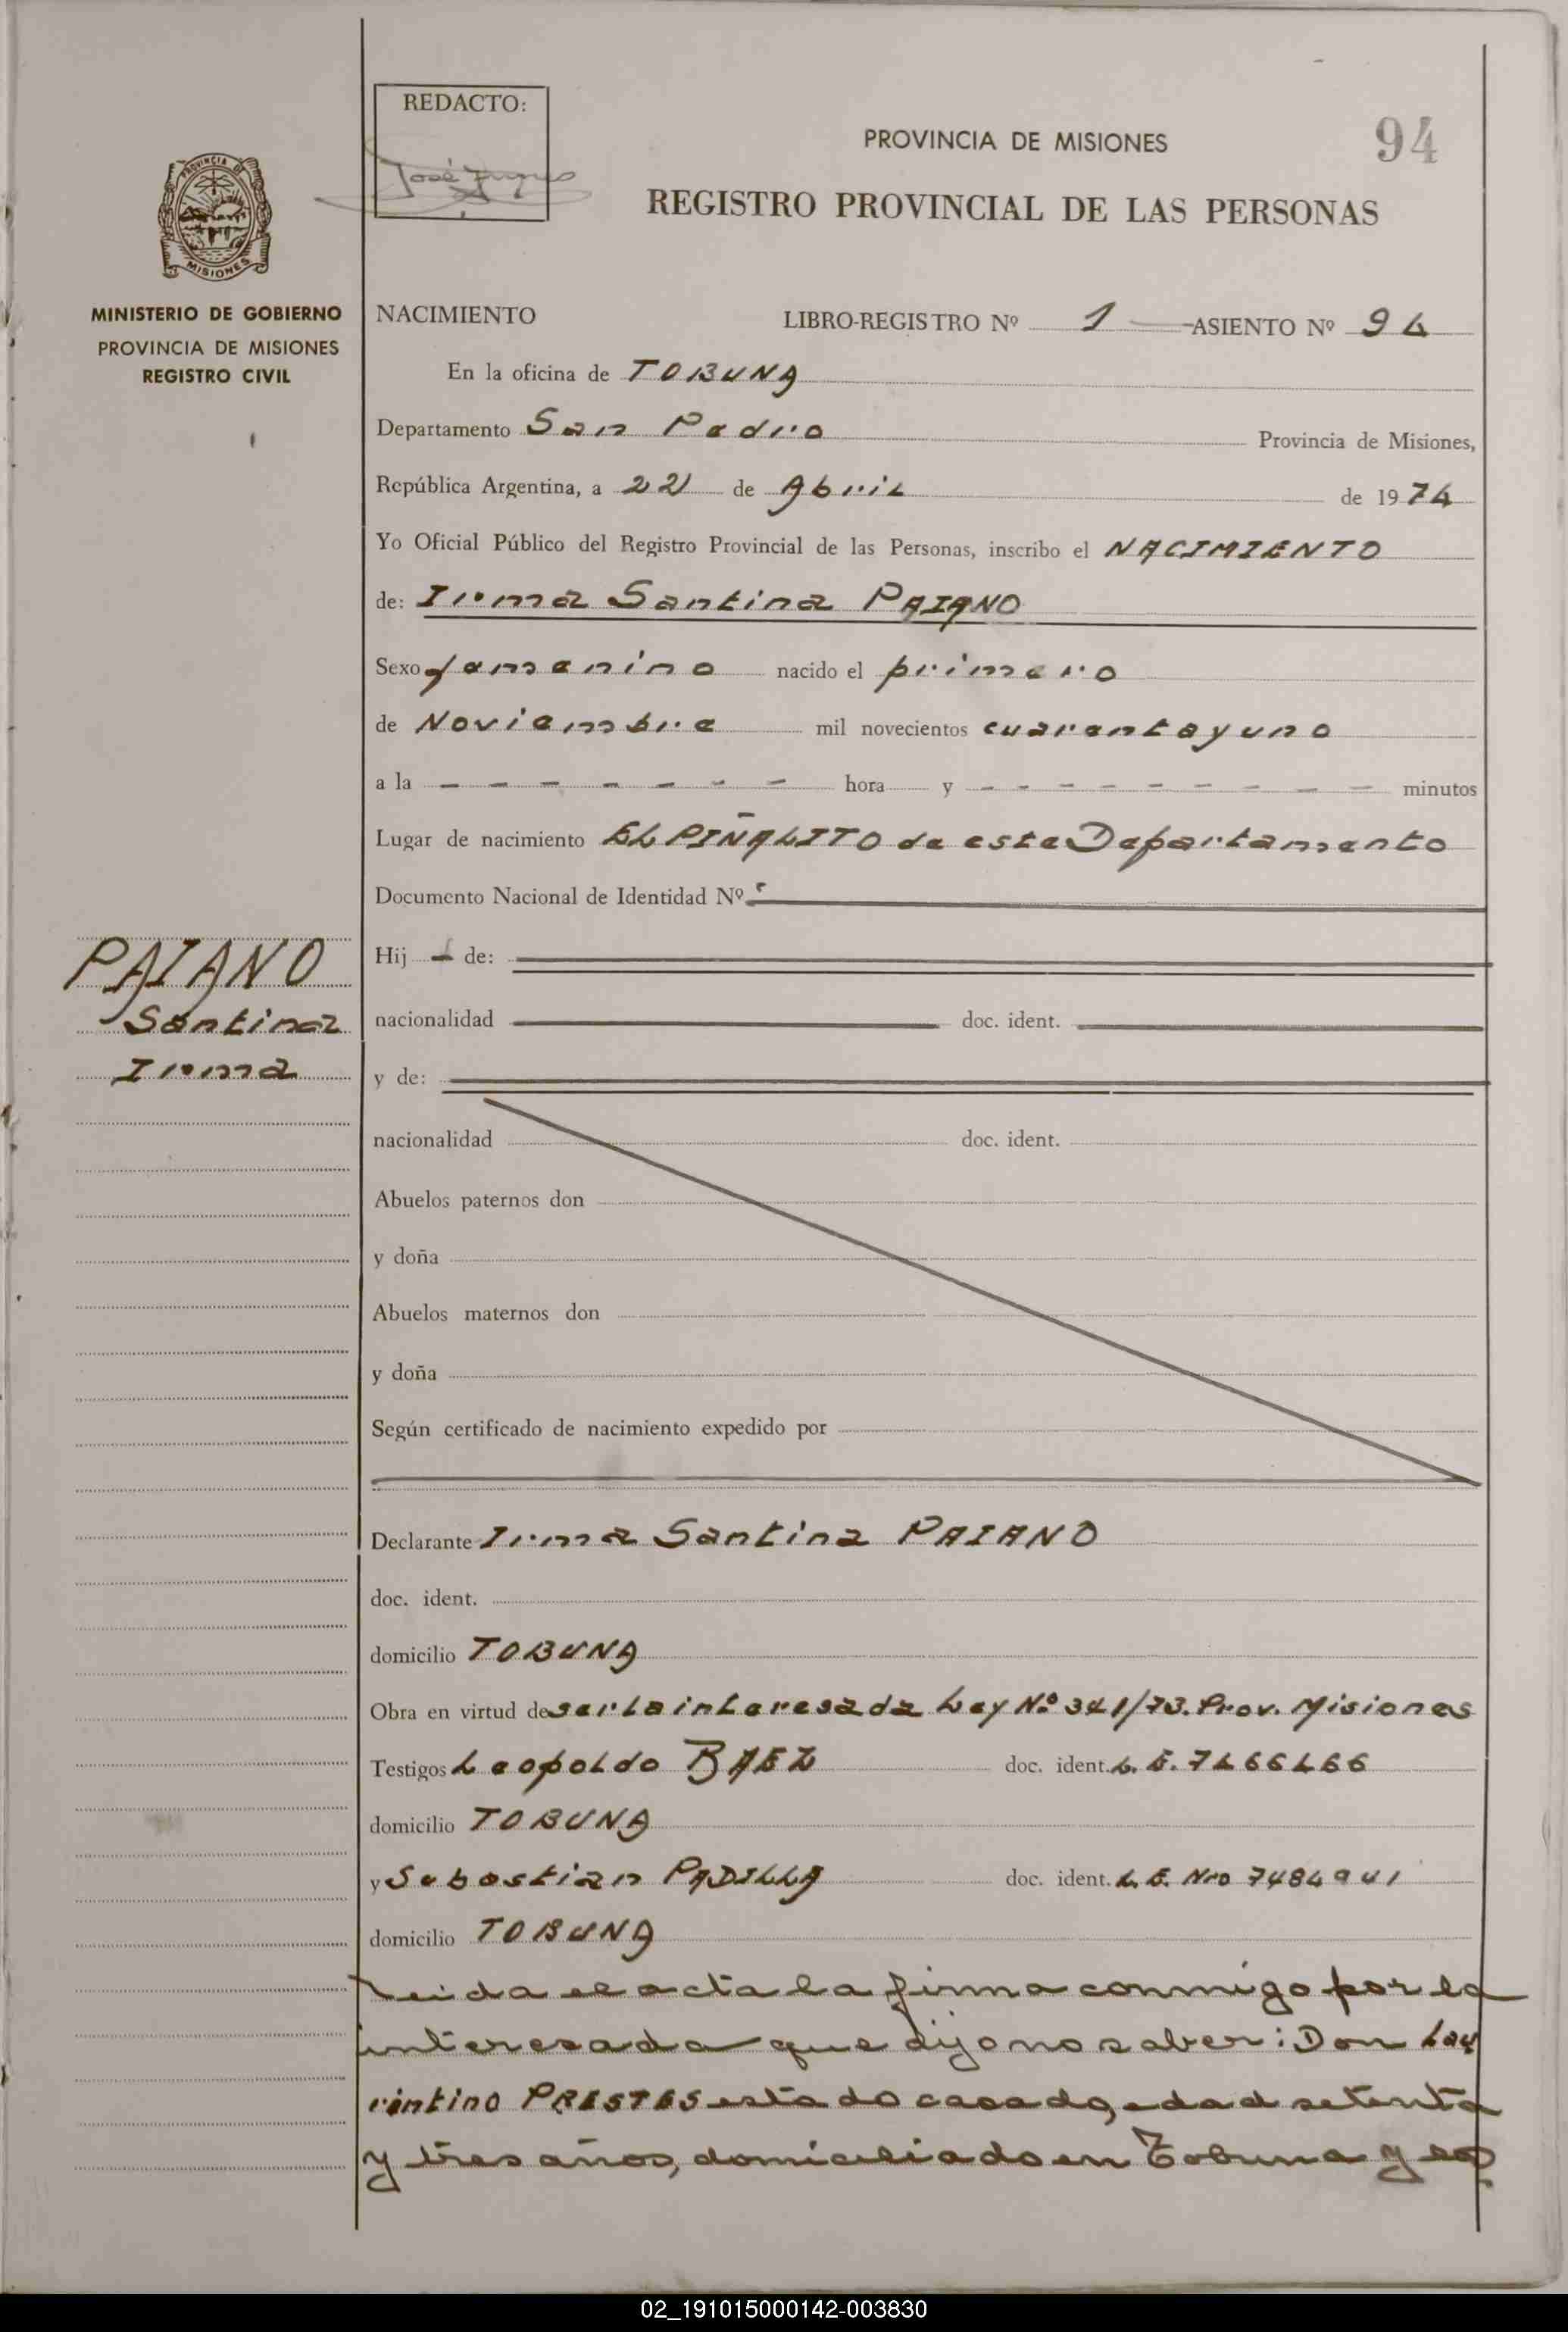 REDACTO:
94
PROVINCIA DE MISIONES
REGISTRO PROVINCIAL DE LAS PERSONAS
PROVINCIA DE
MISIONES
MINISTERIO DE GOBIERNO
PROVINCIA DE MISIONES
REGISTRO CIVIL
NACIMIENTO LIBRO-REGISTRO Nº 1 ASIENTO Nº 94
En la oficina de TOBUNA
Departamento San Pedro Provincia de Misiones,
República Argentina, a 22 de Abril de 1974
Yo Oficial Público del Registro Provincial de las Personas, inscribo el NACIMIENTO
de: Irma Santina PAIANO
Sexo femenino nacido el primero
de Noviembre mil novecientos cuarentayuno
a la - - - - - - - hora y - - - - - - - - - - minutos
Lugar de nacimiento EL PIÑALITO de este Departamento
Documento Nacional de Identidad Nº
PAIANO
Santina
Irma
Hij - de:
nacionalidad doc. ident.
y de:
nacionalidad doc. ident.
Abuelos paternos don
y doña
Abuelos maternos don
y doña
Según certificado de nacimiento expedido por
Declarante Irma Santina PAIANO
doc. ident.
domicilio TOBUNA
Obra en virtud de ser la interesada Ley Nº 341/73. Prov. Misiones
Testigos Leopoldo BAEZ doc. ident. L. E.
domicilio TOBUNA
y Sebastian PADILLA doc. ident. L. E. Nro
domicilio TOBUNA
Leida el acta la firma conmigo por la
interesada que dijo no saber: Don Lau
rintino PRESTES estado casado, edad setenta
y tres años, domiciliado en Tobuna y los
02_191015000142-003830